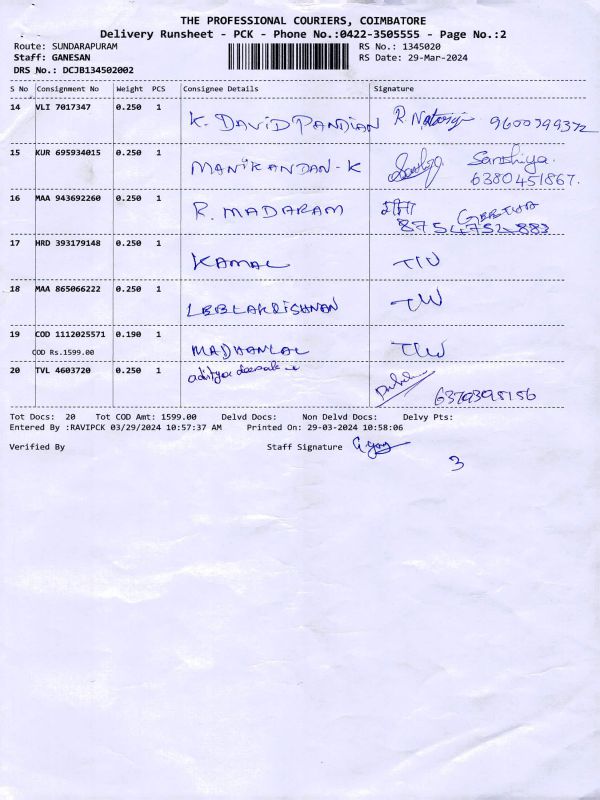 THE PROFESSIONAL COURIERS, COIMBATORE
Delivery Runsheet - PCK - Phone No.:0422-3505555 - Page No.:2
Route: SUNDARAPURAM RS No.: 1345020
Staff: GANESAN RS Date: 29-Mar-2024
DRS No.: DCJB134502002
S No Consignment No Weight PCS Consignee Details Signature
14 VLI 7017347 0.250 1 K. DAVID PANDIAN R. 9600399372
15 KUR 695934015 0.250 1 MANIKANDAN-K Santhiya.
6380451867.
16 MAA 943692260 0.250 1 R. MADARAM
8754752883
17 HRD 393179148 0.250 1 KAMAL
18 MAA 865066222 0.250 1
19 COD 1112025571 0.190 1 MADHANLAL
COD Rs.1599.00
20 TVL 4603720 0.250 1 aditya
Tot Docs: 20 Tot COD Amt: 1599.00 Delvd Docs: Non Delvd Docs: Delvy Pts:
Entered By :RAVIPCK 03/29/2024 10:57:37 AM Printed On: 29-03-2024 10:58:06
Verified By Staff Signature
3